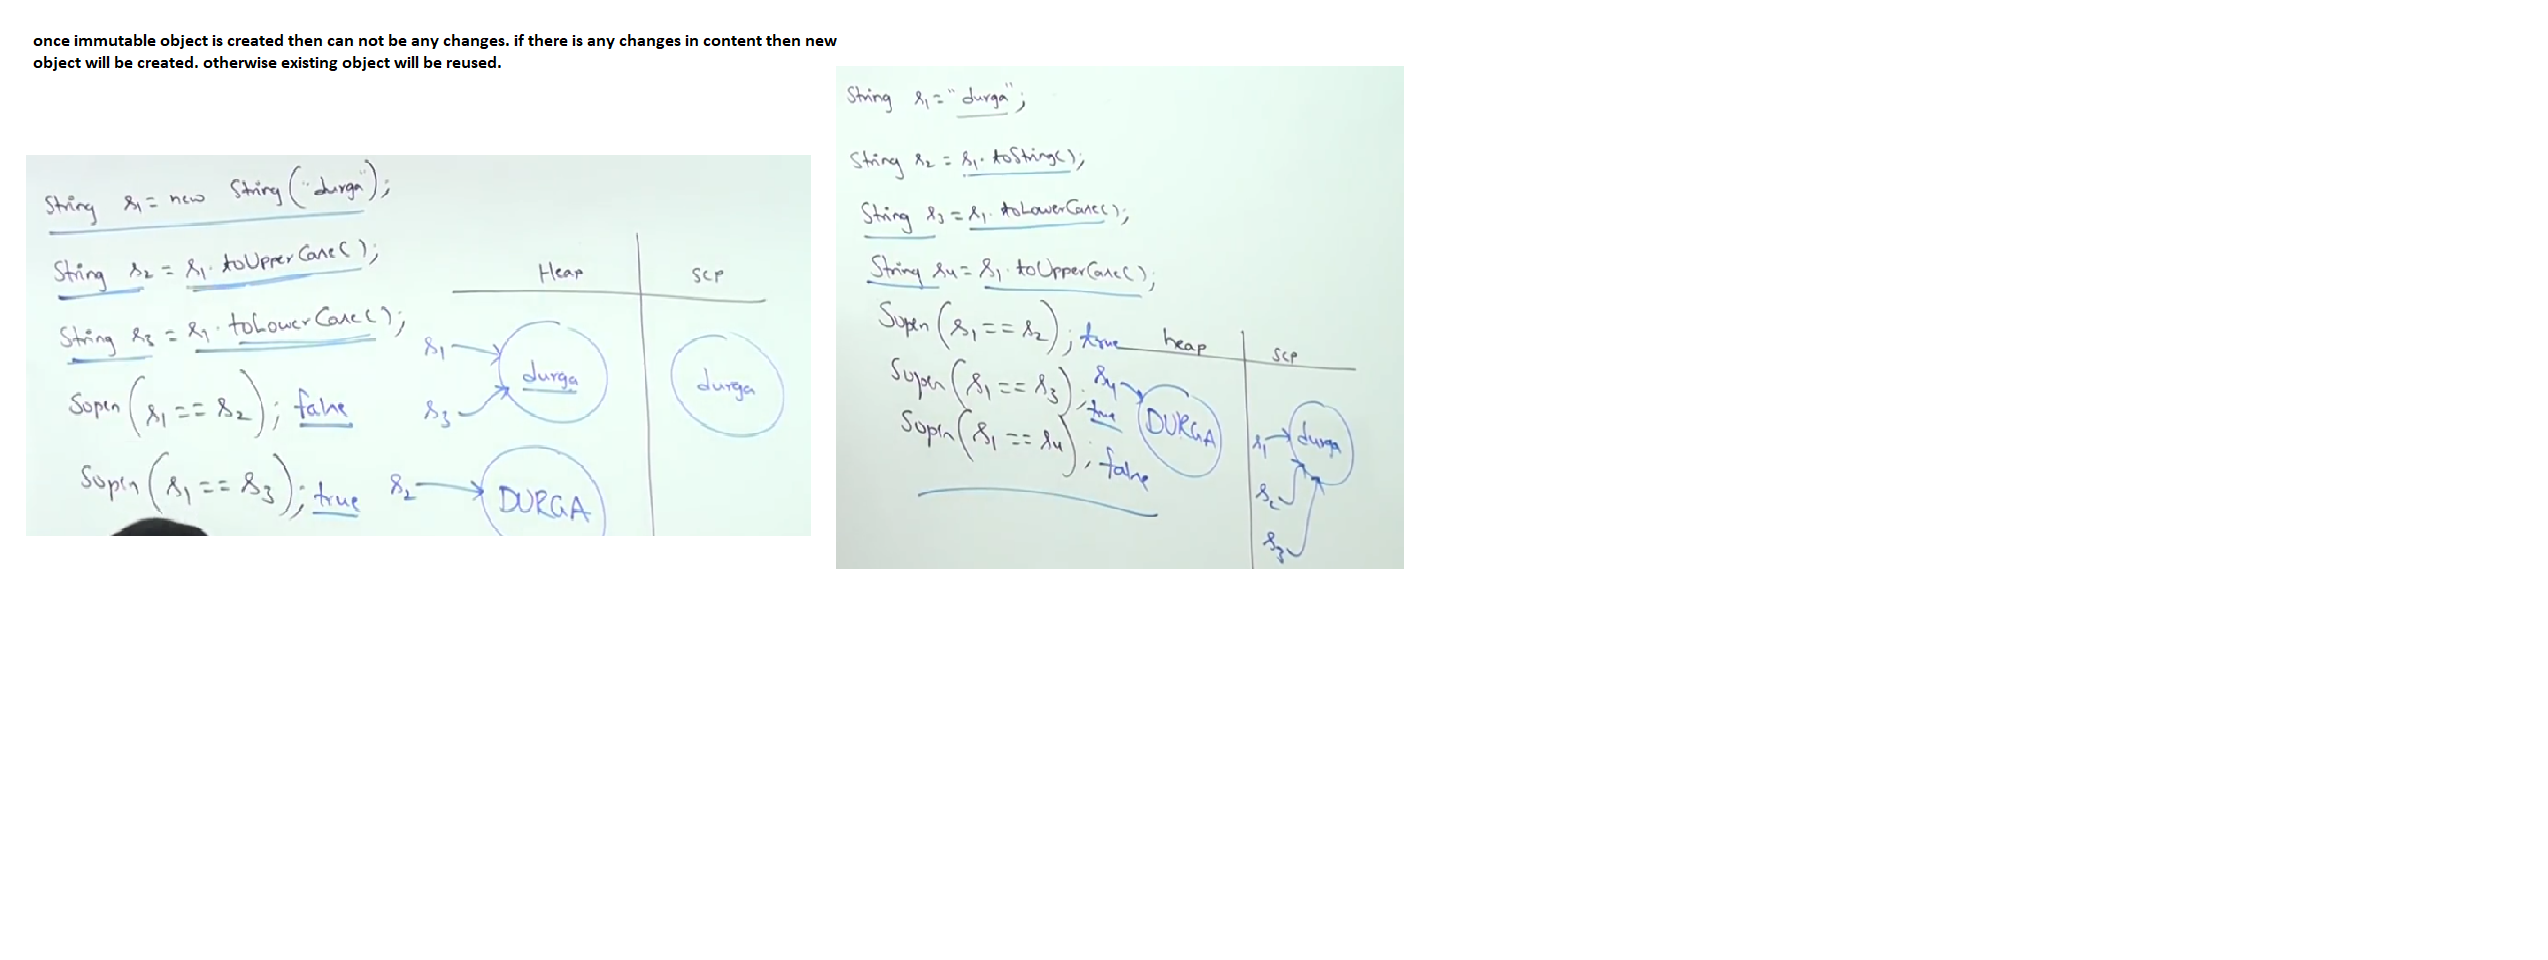 once immutable object is created then can not be any changes. if there is any changes in content then new
object will be created. otherwise existing object will be reused.
String s1 = new String("durga");
String s2 = s1.toUpperCase();
String s3 = s1.toLowerCase();
Sopln(s1 == s2); false
Sopln(s1 == s3); true
Heap
SCP
s1
durga
s3
s2
DURGA
durga
String s1 = "durga";
String s2 = s1.toString();
String s3 = s1.toLowerCase();
String s4 = s1.toUpperCase();
Sopln(s1 == s2); true
Sopln(s1 == s3); true
Sopln(s1 == s4); false
heap
SCP
s4
DURGA
s1
durga
s2
s3